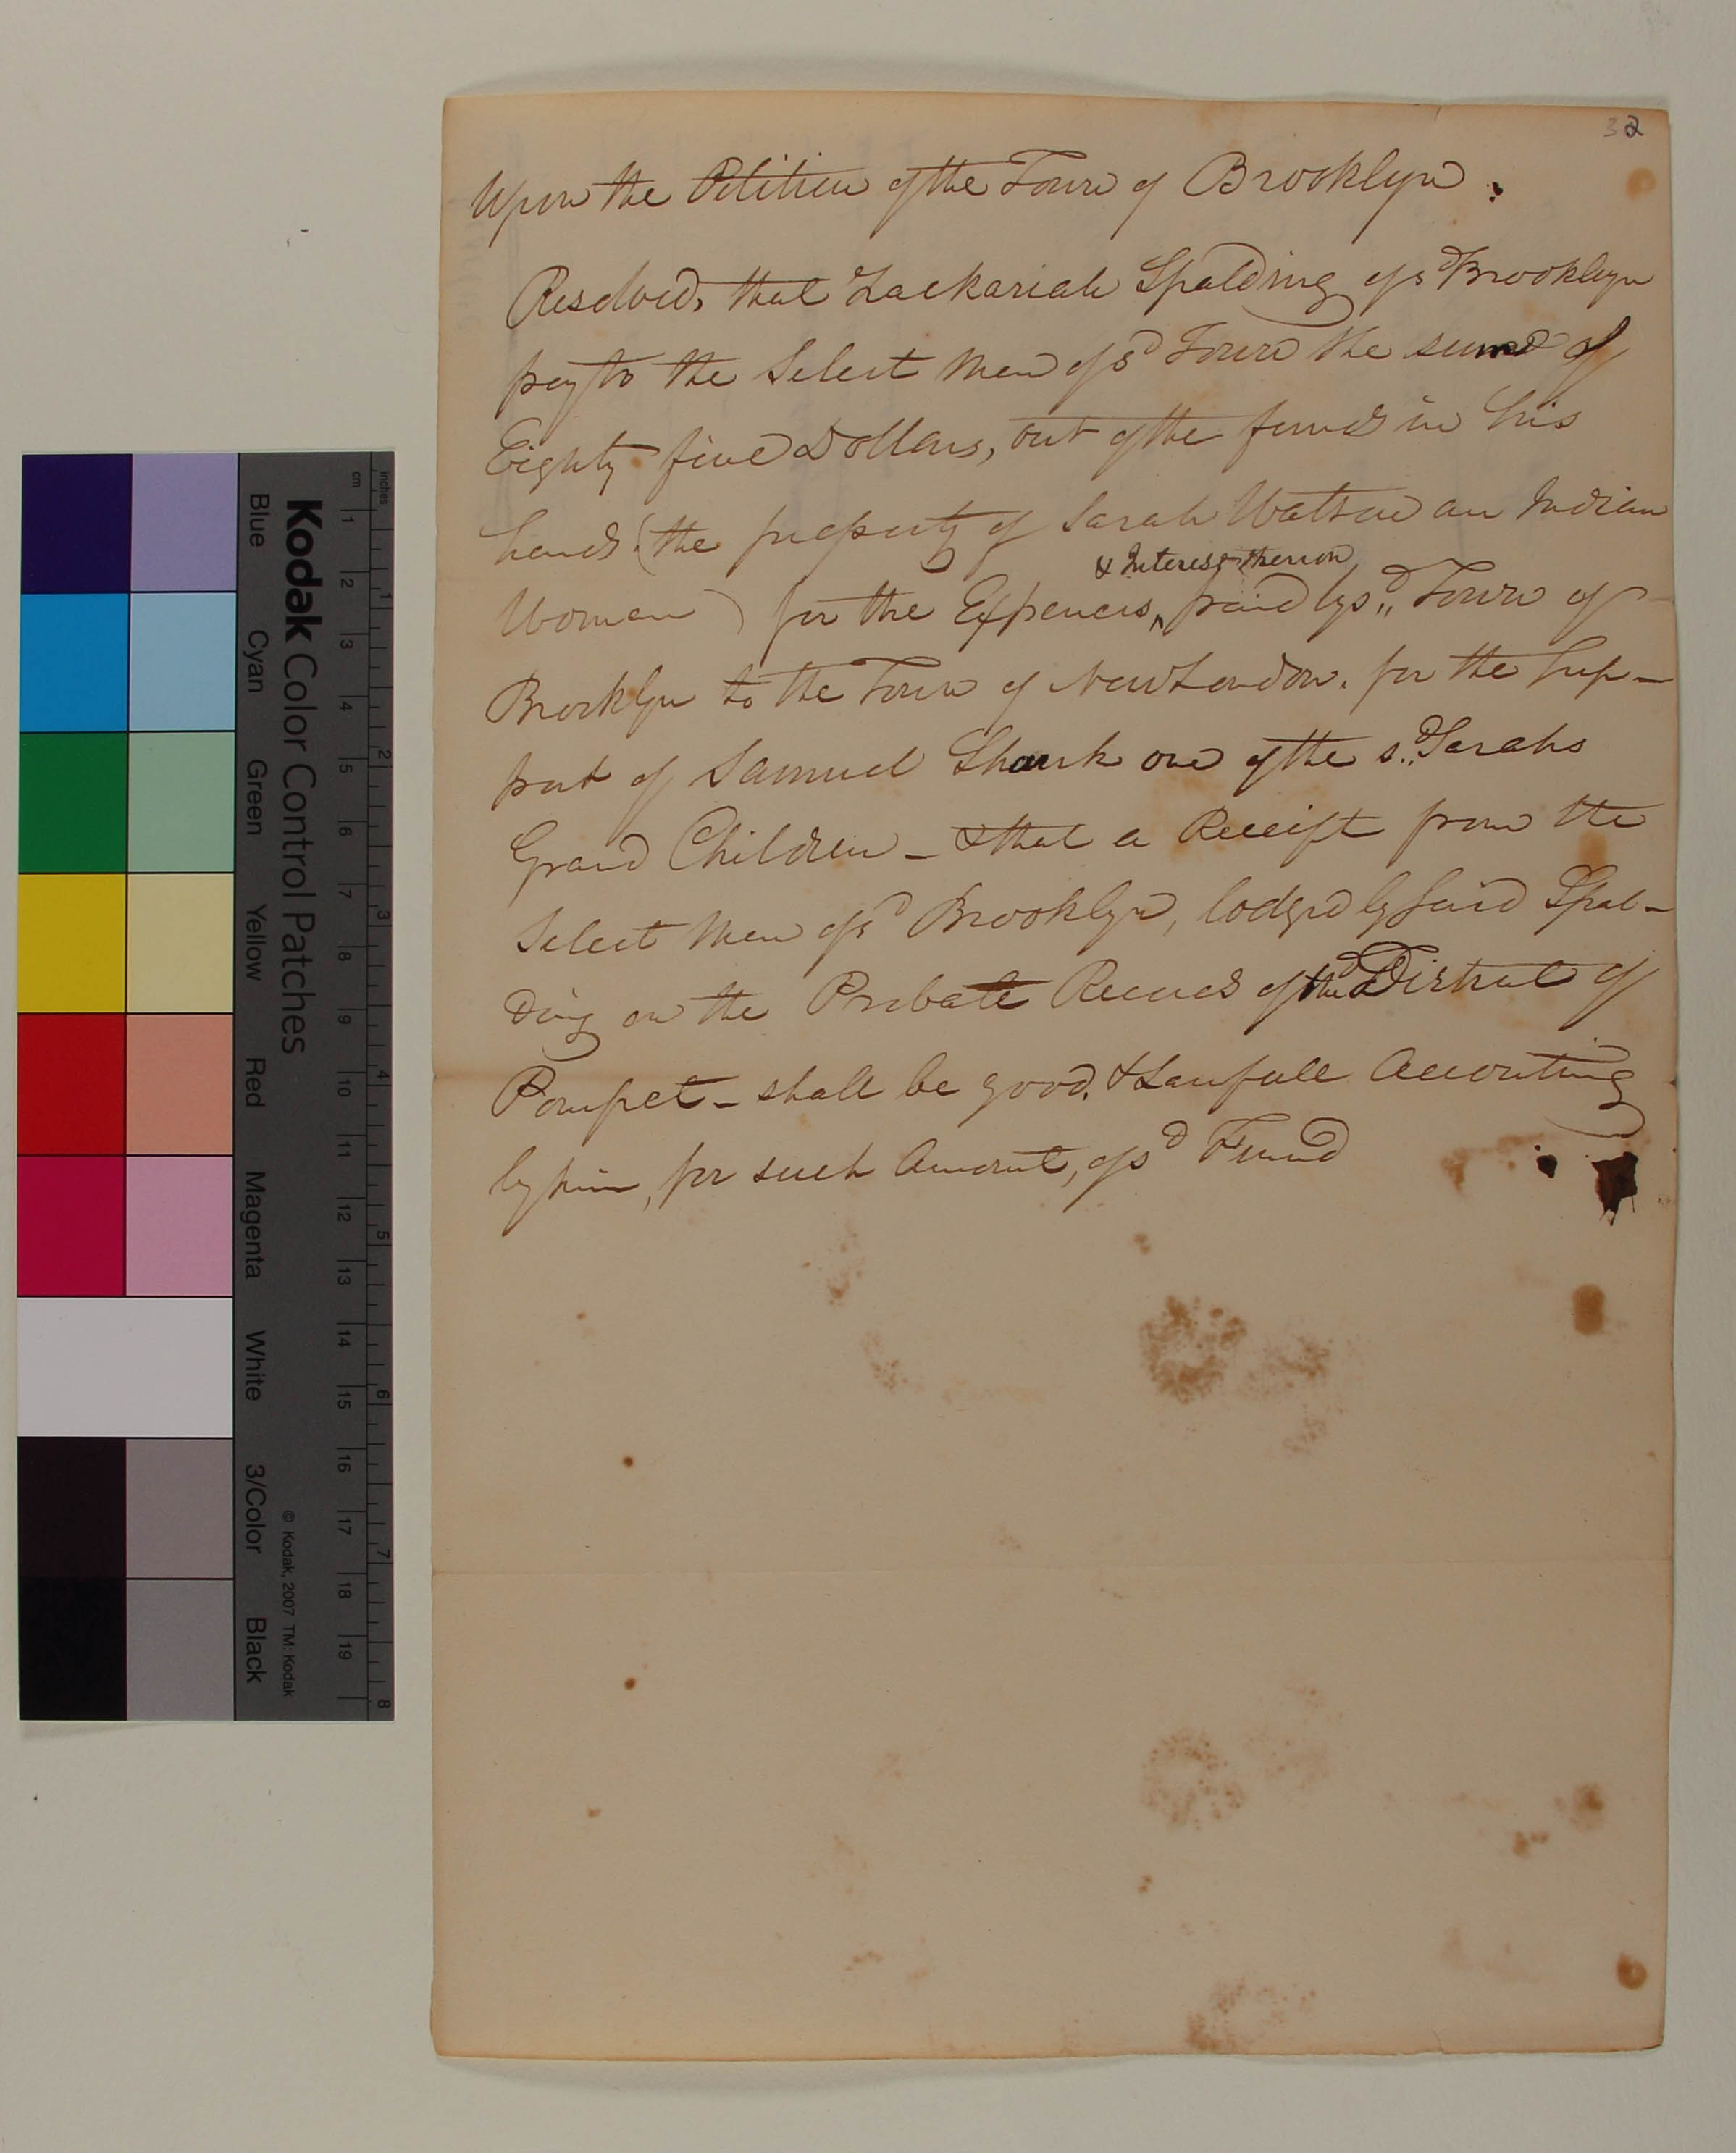 32
Upon the Petition of the Town of Brooklyn:
Resolved, that Zackariah Spalding of sd Brooklyn
pay to the Select Men of sd Town the sum of
Eighty five Dollars, out of the funds in his
hands (the property of Sarah Watson an Indian
& Interest thereon
Woman) for the Expences, paid by sd Town of
Brooklyn to the Town of New London, for the Sup-
port of Samuel Shunk one of the sd Sarahs
Grand Children - & that a Receipt from the
Select Men of sd Brooklyn, lodged by said Spal-
ding on the Probate Records of the District of
Pomfret - shall be good, & Lawfull Accounting
by him, for such Amount, of sd Fund
Kodak Color Control Patches
Blue Cyan Green Yellow Red Magenta White 3/Color Black
© Kodak, 2007 TM: Kodak
inches 1 2 3 4 5 6 7 8
cm 1 2 3 4 5 6 7 8 9 10 11 12 13 14 15 16 17 18 19